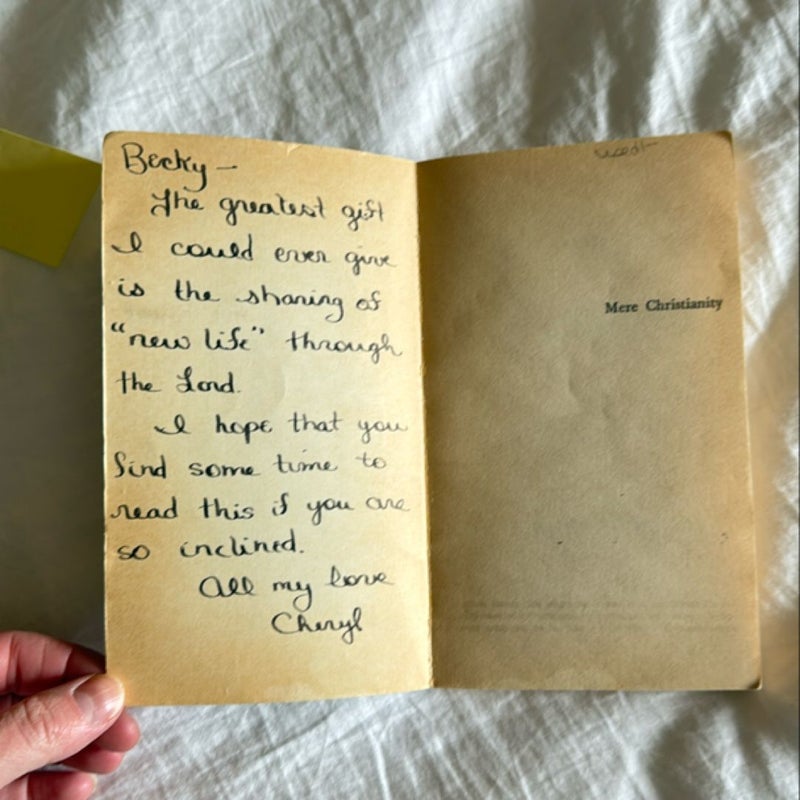 Becky —
The greatest gift
I could ever give
is the sharing of
“new life” through
the Lord.
I hope that you
find some time to
read this if you are
so inclined.
All my love
Cheryl
Mere Christianity